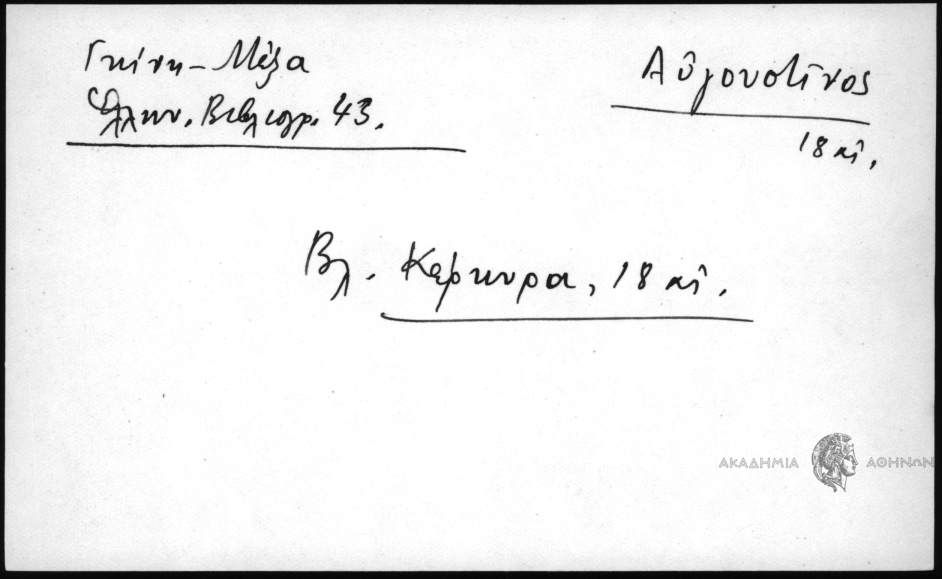 Γκίνη - Μέξα
Ἑλλην. Βιβλιογρ. 43.
Αὐγουστῖνος
18 αἰ.
Βλ. Κέρκυρα, 18 αἰ.
ΑΚΑΔΗΜΙΑ ΑΘΗΝΩΝ